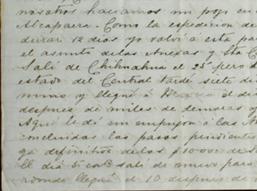 nosotros haciamos un pozo en
Alcaparra. Como la espedicion de
durar 12 dias yo volvi a esta par
el asunto de las Anexas y Sta
Sali de Chihuahua el 25 pero
estado del Central tardé siete
mino y llegué á el
despues de miles de demoras y
Aqui le di un empujon á las
concluidas las pasos pendientes
go definitivo de los $10.000 de
El dia 5 salí de nuevo para
donde llegué el 10 despues de